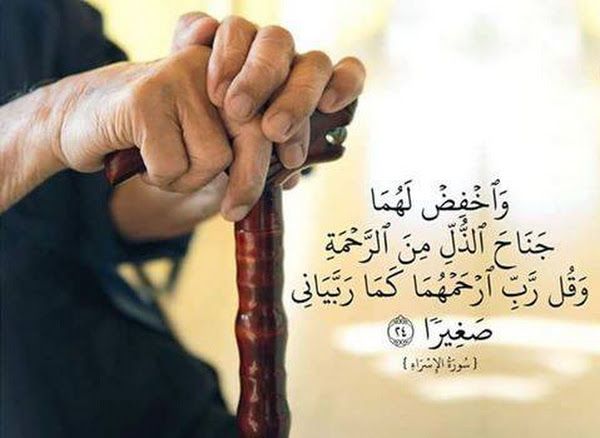 وَٱخۡفِضۡ لَهُمَا
جَنَاحَ ٱلذُّلِّ مِنَ ٱلرَّحۡمَةِ
وَقُل رَّبِّ ٱرۡحَمۡهُمَا كَمَا رَبَّيَانِى
صَغِيرًا ٢٤
{ سُورَةُ الإِسْرَاءِ }